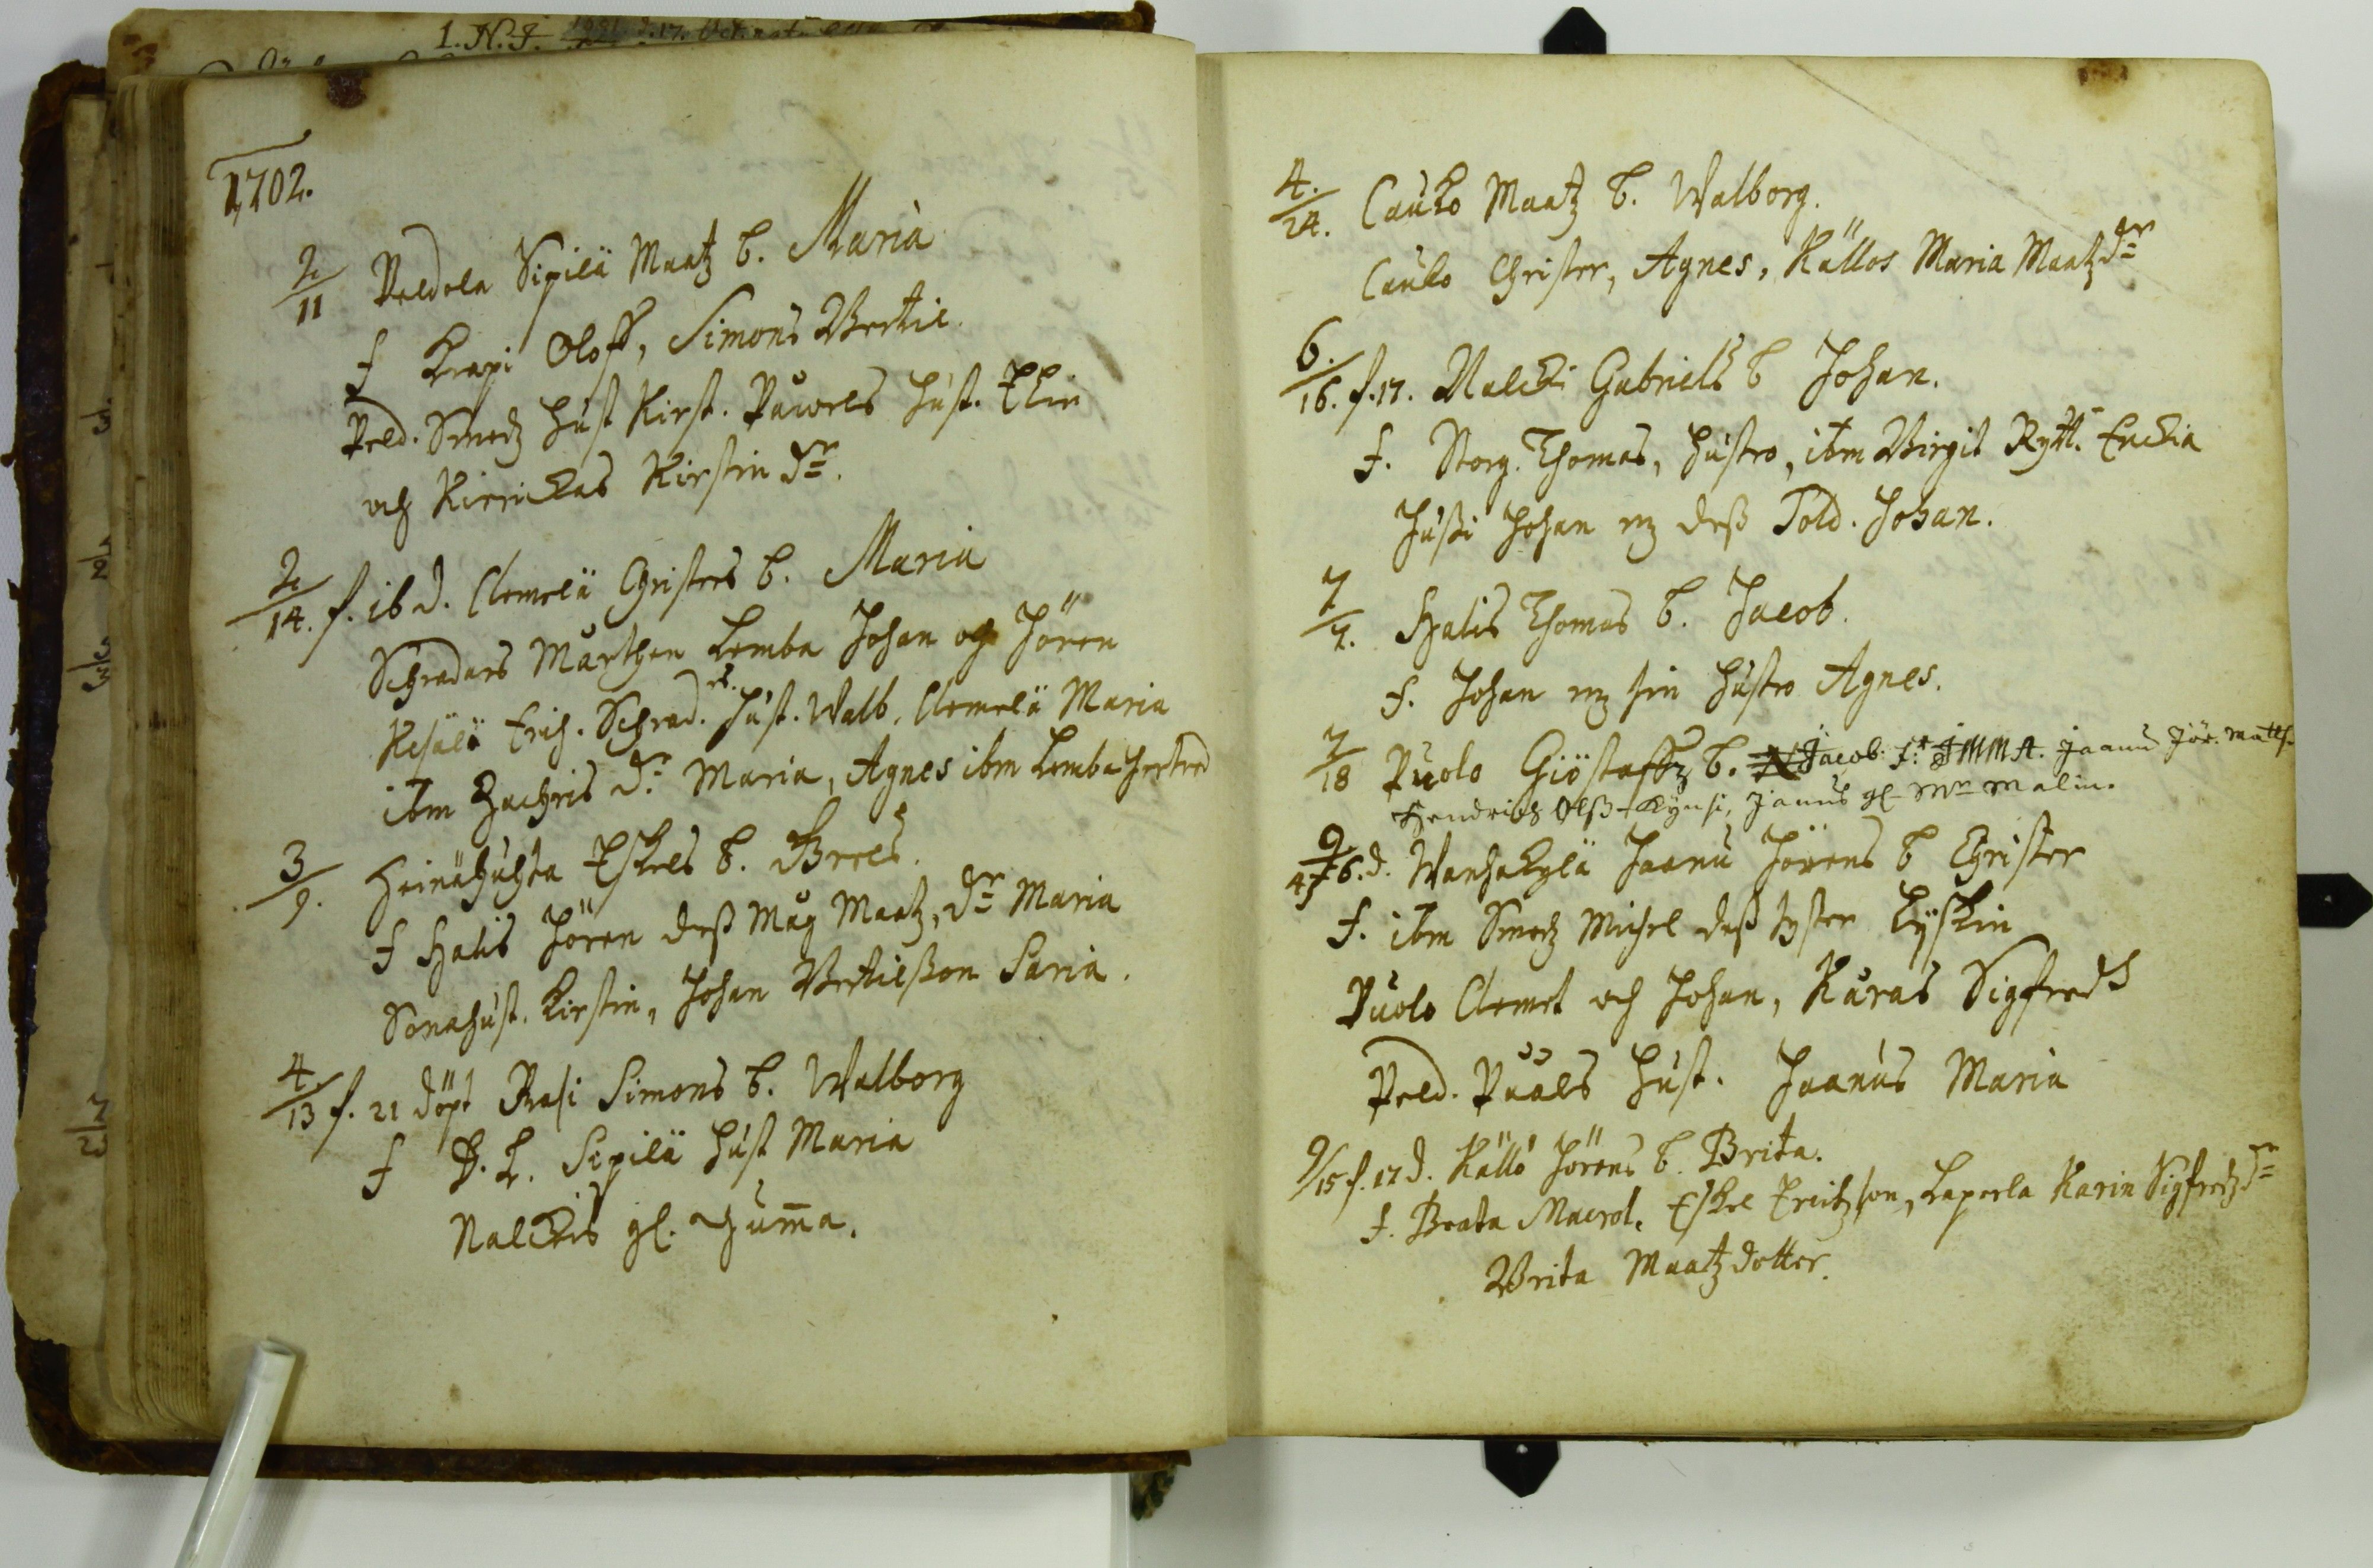 1702.
2/11 Peldola Sipilä Maatz b. Maria
f Krapi Oloff, Simons Bertil.
Peld. Smedz hust Kirst. Påwels hust. Elin
och Kirrickas Kirstin dr.
2/14. f. 16 d. Clemelä Christers b. Maria
Schradars Mårthen Lemba Johan och Jören
Kesälä Erich. Schrad.rs hust. Walb. Clemelä Maria
ibm Zachris dr Maria, Agnes ibm Lemba
3/9. Heinähuhta Eskels b. Brels.
f Halis Jören dess Måg Maatz, dr Maria
Sonahust. Kirstin, Johan Bertilsson Saria.
4/13 f. 21 döpt Rasi Simons b. Walborg
f D. L. Sipilä hust Maria
Nalckis gl. Gumma.
4./24. Cauko Maatz b. Walborg.
Cauko Christer, Agnes, Källos Maria Maatz dr
6./16. f. 17. Nalcki Gabriels b Johan.
f. Storg. Thomas, hustro, ibm Birgit Rytt. Enckia
Hussi Johan mz dess Sold. Johan.
7/7. Halis Thomas b. Jacob.
f. Johan mz sin hustro Agnes.
7/18 Puolo Giöstaffz b. Jacob. Jaanu Jör. Matts.
Hendrich Olss. Kynsi, Janus gl. Mr Malin.
6. d. Wanhakylä Jaanu Jörens b Christer
f. ibm Smedz Michel dess syster Lijskin
Puolo Clemet och Johan, Karas Sigfreds
Peld. Pååls hust. Jaanus Maria
9/15 f. 17 d. Källo Jörens b. Brita.
f. Beata Macrol. Eskel Eritzson, Laperla Karin Sigfredz dr
Brita Maatz dotter.